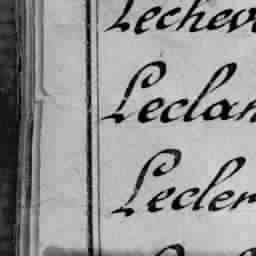 Lechev
Leclan
Lecler